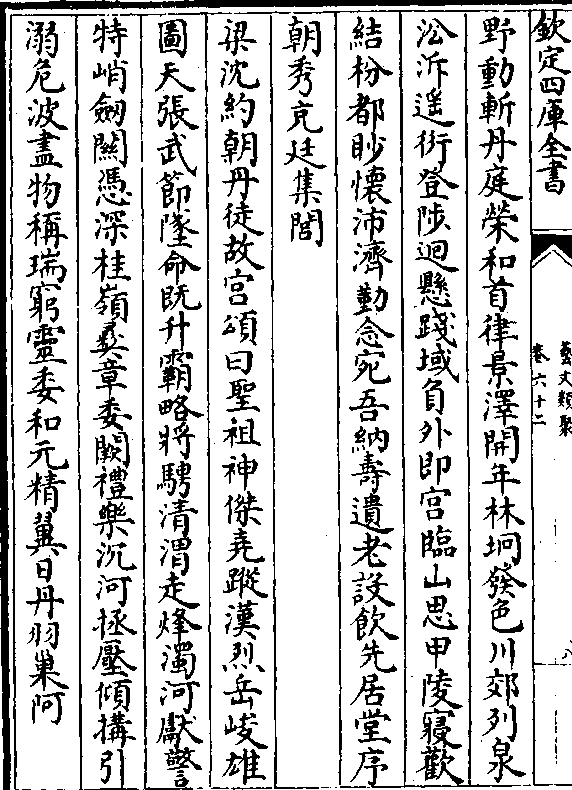 欽定四庫全書
藝文類聚
卷六十二
野動斬丹庭榮和首律景澤開年林坰發色川郊列泉
㳂泝遥衍登陟迥懸踐域負外即宫臨山思甲陵寢歡
結枌都眇懷沛濟勤念宛吾納壽遺老設飲先居堂序
朝秀亮廷集誾
梁沈約朝丹徒故宮頌曰聖祖神傑堯蹤漢烈岳峻雄
圖天張武節墜命既升霸略將騁清渭走烽濁河獻警
特峭劒關憑深桂嶺彛章委闕禮樂沉河拯壓傾搆引
溺危波盡物稱瑞窮靈委和元精翼日丹羽巢阿